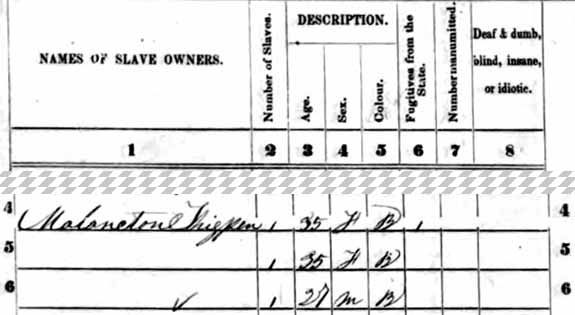 NAMES OF SLAVE OWNERS. Number of Slaves. DESCRIPTION. Fugitives from the State. Number manumitted. Deaf & dumb, blind, insane, or idiotic.
Age. Sex. Colour.
1 2 3 4 5 6 7 8
4 Malancton Thigpen 1 35 F B 1 4
5 1 35 F B 5
6 ✓ 1 27 m B 6